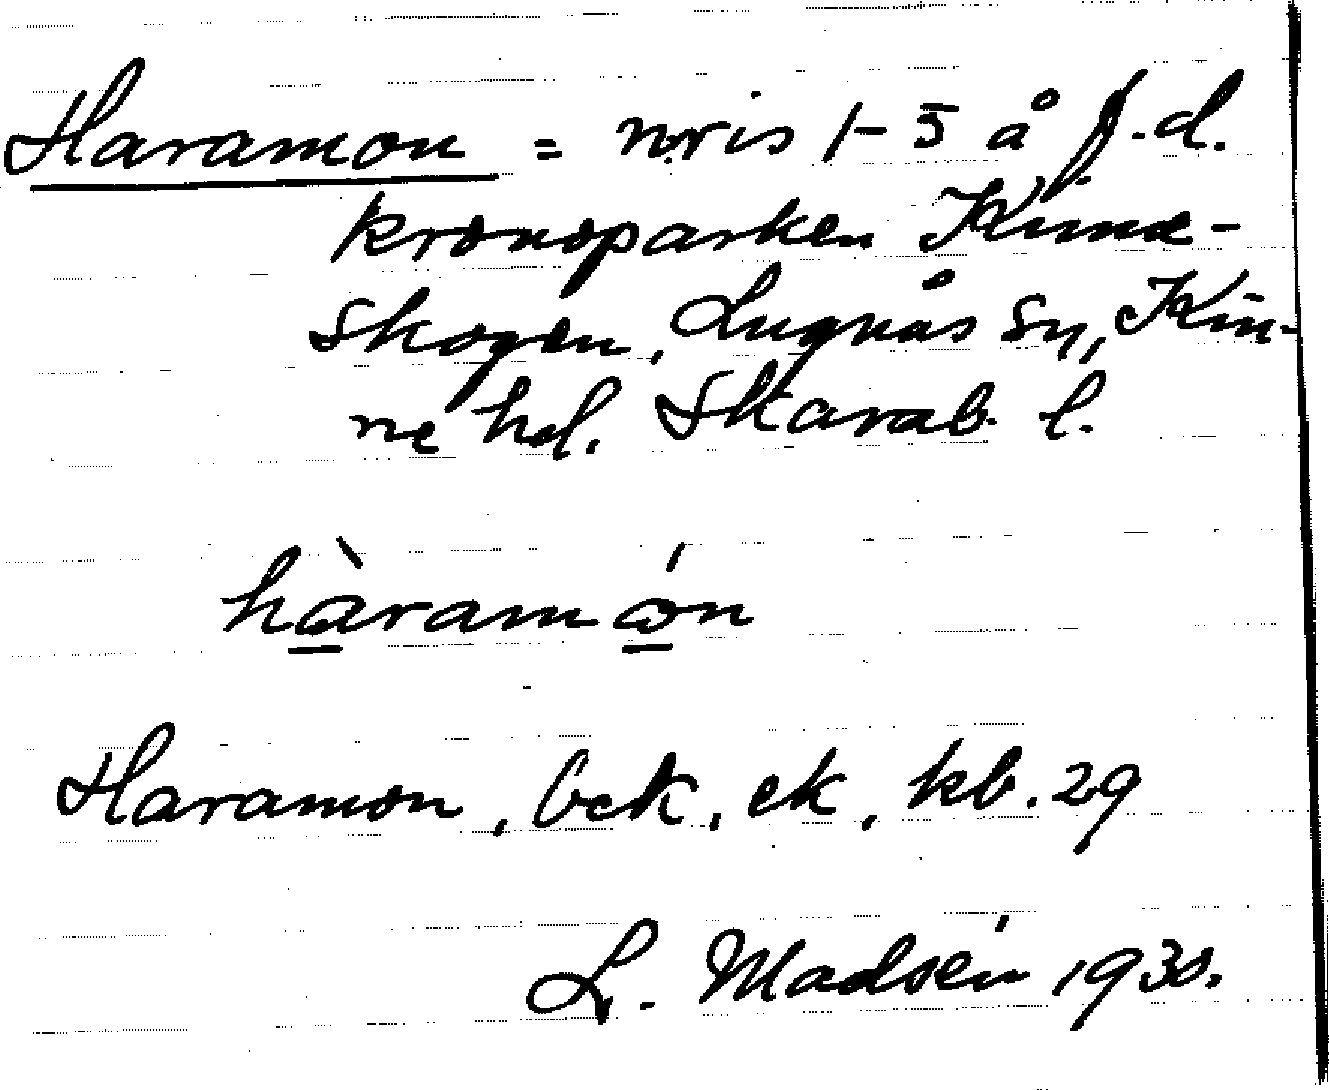 Haramon = n:ris 1-5 å f.d.
kronoparken Kinne-
skogen, Lugnås sn, Kin-
ne hd. Skarab. l.
hàramón
Haramon, bck, ek, kb. 29
L. Madsén 1930.